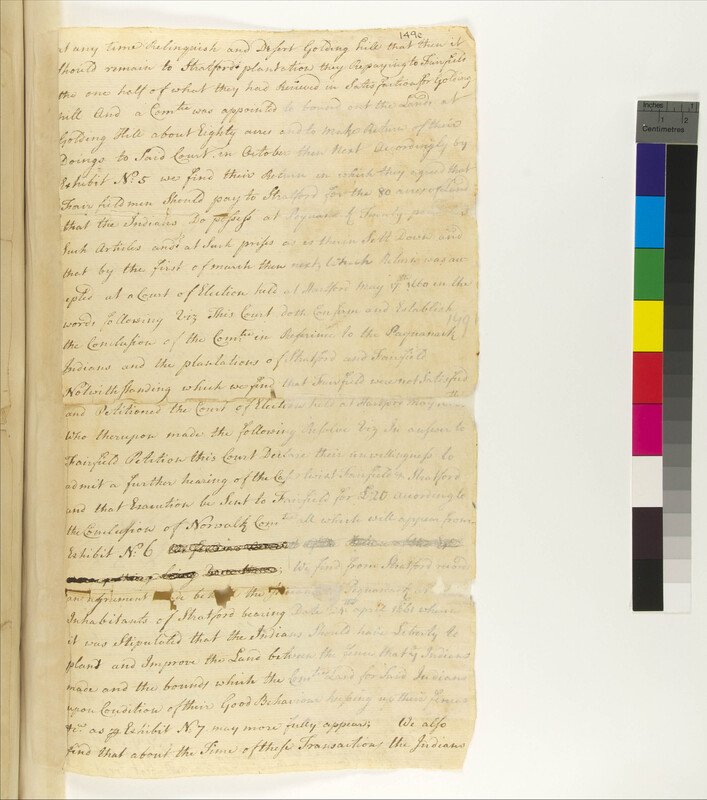 149c
at any time Relinquish and Desert Golding hill that then it
should remain to Stratford plantation they Repaying to Fairfield
the one half of what they had Received in Satisfaction for Golding
hill And a Com.tee was appointed to bound out the Lands at
Golding Hill about Eighty acres and to make Return of their
Doings to Said Court in October then Next Accordingly by
Exhibit No. 5 we find their Return in which they agreed that
Fairfield men Should pay to Stratford for the 80 acres of Land
that the Indians Do possess at Pequanack Twenty
Such Articles and at Such prises as is therein Sett Down and
that by the first of march then next, which Return was
epted at a Court of Election held at Hartford May 17th 1660 in the
words following Viz This Court doth Confirm and Establish
the Conclusion of the Com.tee in Referance to the Paquanack
Indians and the plantations of Stratford and Fairfield
Notwithstanding which we find that Fairfield were not Satisfied
and Petitioned the Court of Election held at Hartford may
Who thereupon made the following Resolve Viz In answer to
Fairfield Petition this Court Declare their unwillingness to
admit a further hearing of the Case twixt Fairfield & Stratford
and that Execution be Sent to Fairfield for £20 according to
the Conclusion of Norwalk Com.tee all which will appear from
Exhibit No. 6
We find from Stratford
an agreement made between the Pequannock
Inhabitants of Stratford bearing Date 24th april 1661 where
it was Stipulated that the Indians Should have Liberty to
plant and Improve the Land between the that ye Indians
made and the bounds which the Com.tee Laid for Said Indians
upon Condition of their Good Behaviour keeping up their fences
&c. as Exhibit No. 7 may more fully appear; We also
find that about the Time of these Transactions the Indians
Inches
1
2
Centimetres